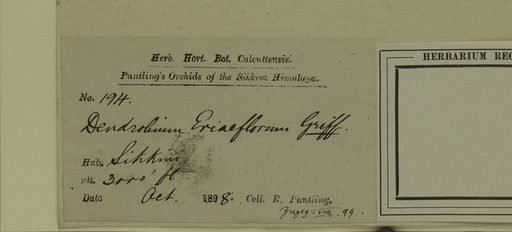 Herb. Hort. Bot. Calcuttensis.
Pantling's Orchids of the Sikkim Himalaya.
No. 194.
Dendrobium Eriaeflorum Griff.
Hab. Sikkim
Alt. 3000' ft
Date Oct. 1898. Coll. R. Pantling.
99.
HERBARIUM REG